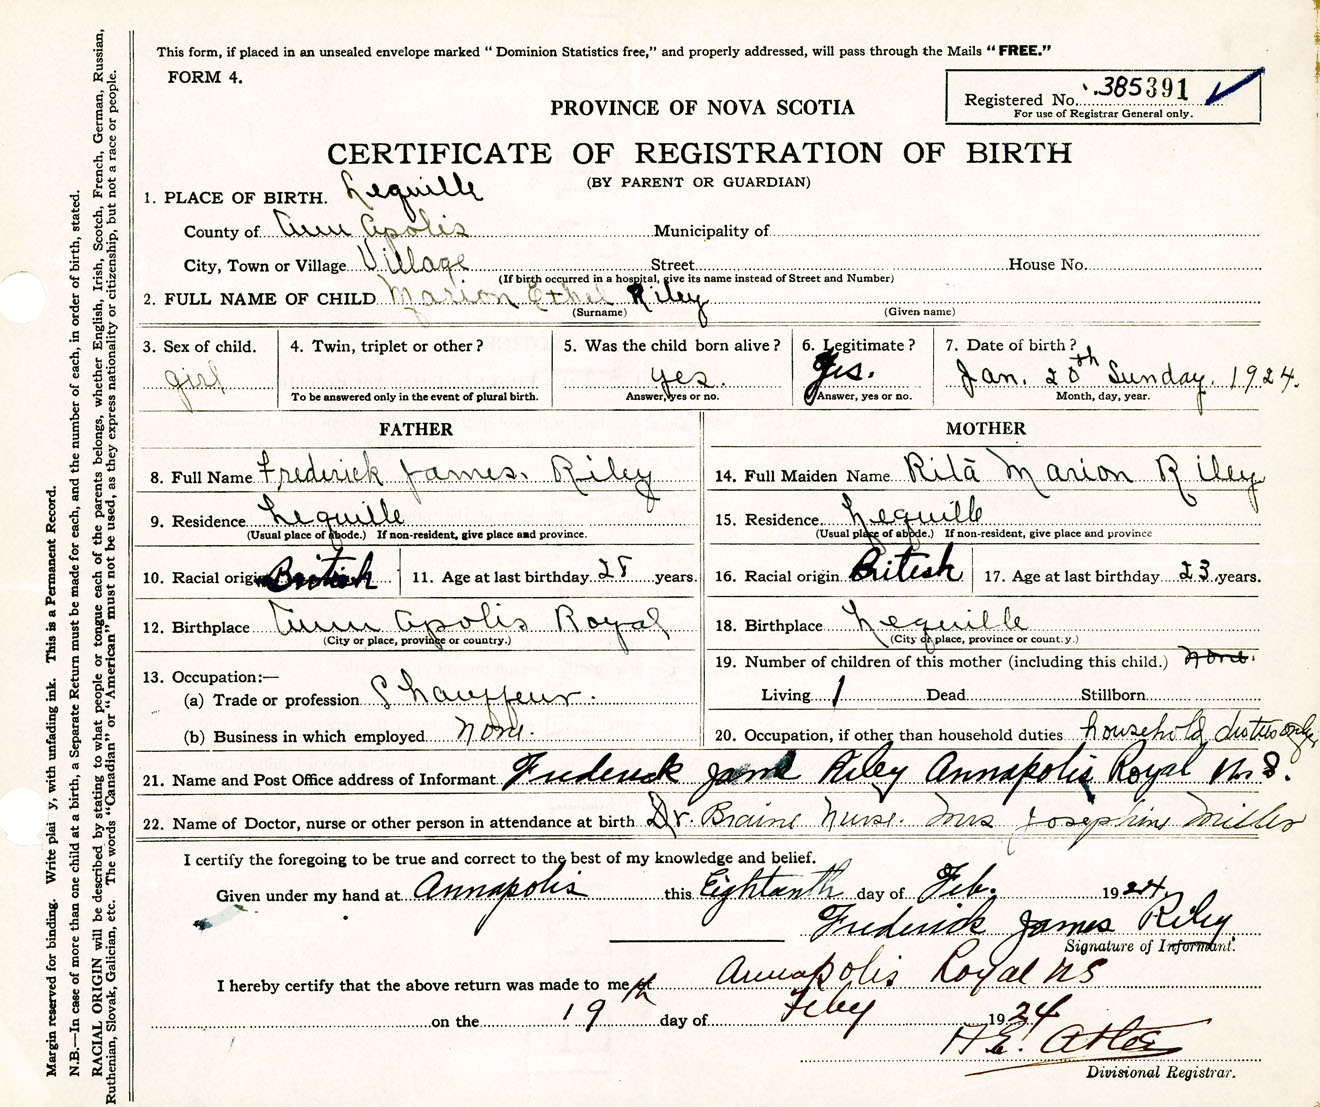 This form, if placed in an unsealed envelope marked "Dominion Statistics free," and properly addressed, will pass through the Mails "FREE."
FORM 4.
Registered No. 385391
For use of Registrar General only.
PROVINCE OF NOVA SCOTIA
CERTIFICATE OF REGISTRATION OF BIRTH
(BY PARENT OR GUARDIAN)
1. PLACE OF BIRTH. Lequille
County of Ann apolis Municipality of
City, Town or Village Village Street House No.
(If birth occurred in a hospital, give its name instead of Street and Number)
2. FULL NAME OF CHILD Marion Ethel Riley
(Surname) (Given name)
3. Sex of child. 4. Twin, triplet or other? 5. Was the child born alive? 6. Legitimate? 7. Date of birth?
girl yes. Yes. Jan. 20th Sunday. 1924.
To be answered only in the event of plural birth. Answer, yes or no. Answer, yes or no. Month, day, year.
FATHER MOTHER
8. Full Name Frederick James. Riley 14. Full Maiden Name Rita Marion Riley
9. Residence Lequille 15. Residence Lequille
(Usual place of abode.) If non-resident, give place and province. (Usual place of abode.) If non-resident, give place and province
10. Racial origin British 11. Age at last birthday 28 years. 16. Racial origin British 17. Age at last birthday 23 years.
12. Birthplace Ann apolis Royal 18. Birthplace Lequille
(City or place, province or country.) (City or place, province or country.)
13. Occupation:— 19. Number of children of this mother (including this child.) none.
(a) Trade or profession Chauffeur. Living 1 Dead Stillborn
(b) Business in which employed None. 20. Occupation, if other than household duties household duties only
21. Name and Post Office address of Informant Frederick James Riley Annapolis Royal N.S.
22. Name of Doctor, nurse or other person in attendance at birth Dr. Braine Nurse. Mrs Josephine Miller
I certify the foregoing to be true and correct to the best of my knowledge and belief.
Given under my hand at Annapolis this Eightanth day of Feb. 1924.
Frederick James Riley
Signature of Informant.
I hereby certify that the above return was made to me at Annapolis Royal NS
on the 19th day of Feby 1924
H.E.
Divisional Registrar.
Margin reserved for binding. Write plai y, with unfading ink. This is a Permanent Record.
N.B.—In case of more than one child at a birth, a Separate Return must be made for each, and the number of each, in order of birth, stated.
RACIAL ORIGIN will be described by stating to what people or tongue each of the parents belongs, whether English, Irish, Scotch, French, German, Russian,
Ruthenian, Slovak, Galician, etc. The words "Canadian" or "American" must not be used, as they express nationality or citizenship, but not a race or people.